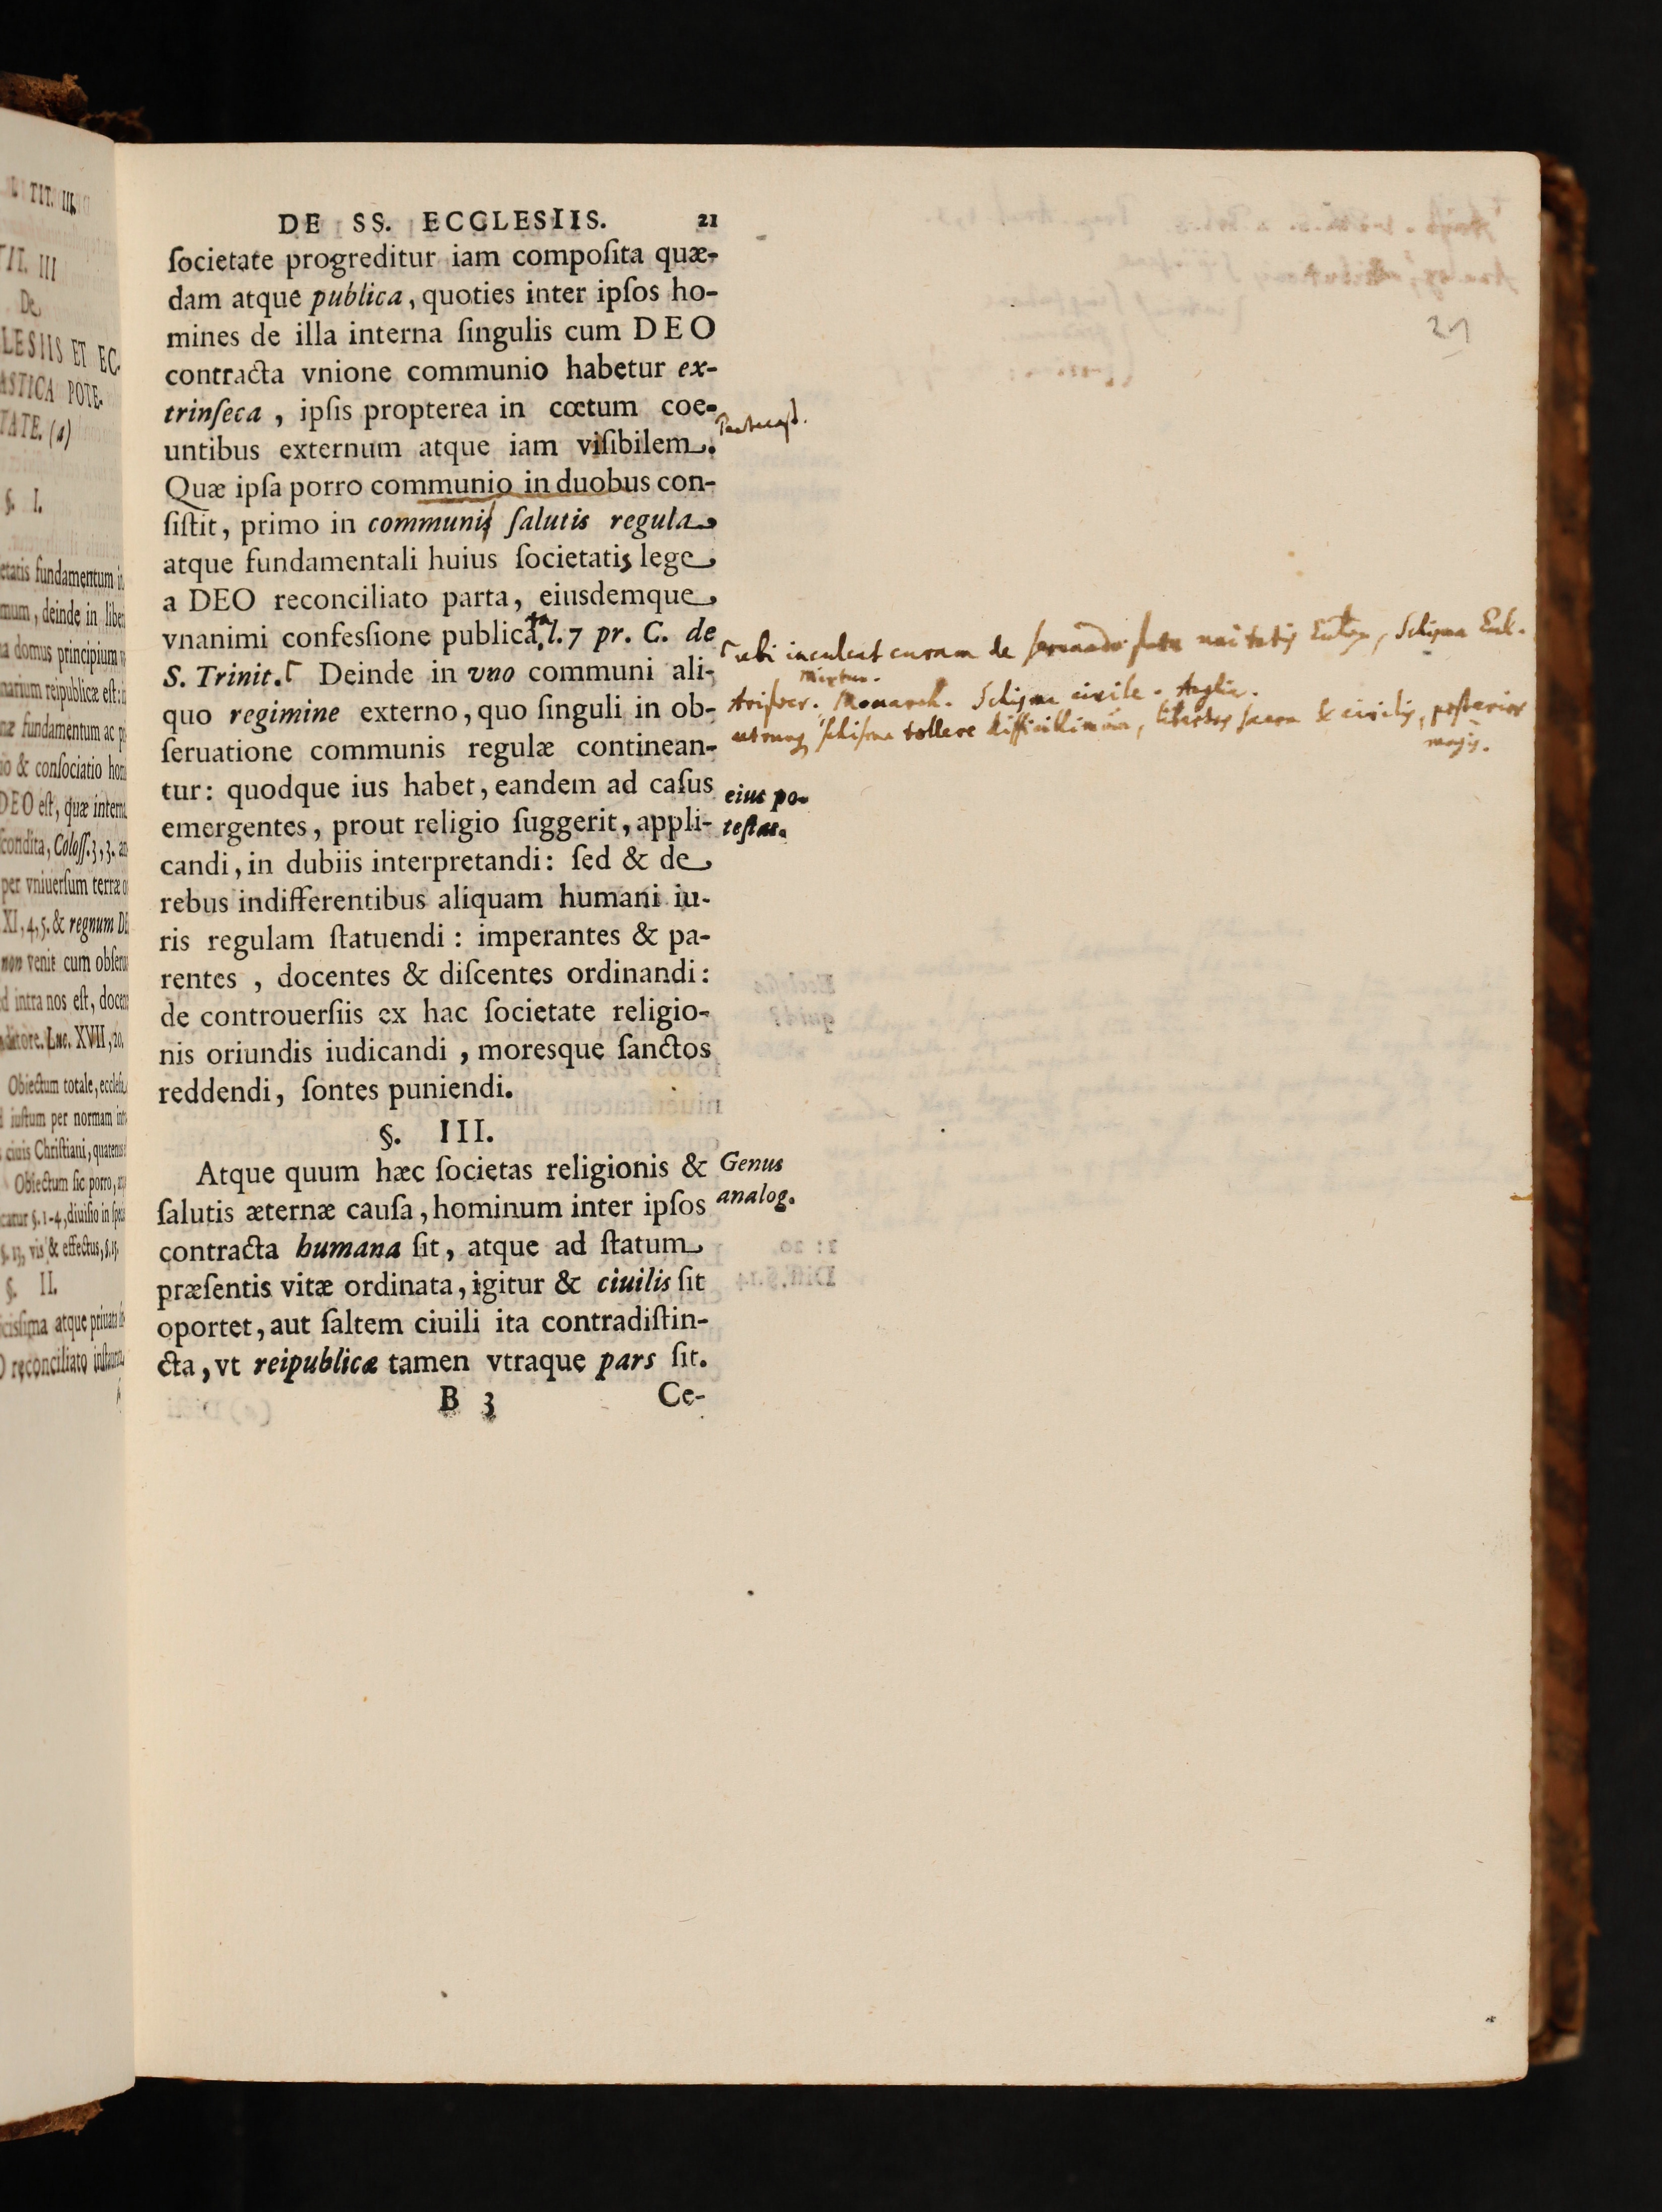 DE SS. ECCLESIIS. 21
ſocietate progreditur iam compoſita quæ-
dam atque publica, quoties inter ipſos ho-
mines de illa interna ſingulis cum DEO
contracta vnione communio habetur ex-
trinſeca, ipſis propterea in cœtum coe-
untibus externum atque iam viſibilem.
Quæ ipſa porro communio in duobus con-
ſiſtit, primo in communi ſalutis regula
atque fundamentali huius ſocietatis lege
a DEO reconciliato parta, eiusdemque
vnanimi confesſione publica, l. 7 pr. C. de
S. Trinit. Deinde in vno communi ali-
quo regimine externo, quo ſinguli in ob-
ſeruatione communis regulæ continean-
tur: quodque ius habet, eandem ad caſus
emergentes, prout religio ſuggerit, appli-
candi, in dubiis interpretandi: ſed & de
rebus indifferentibus aliquam humani iu-
ris regulam ſtatuendi: imperantes & pa-
rentes, docentes & diſcentes ordinandi:
de controuerſiis ex hac ſocietate religio-
nis oriundis iudicandi, moresque ſanctos
reddendi, ſontes puniendi.
§. III.
Atque quum hæc ſocietas religionis &
ſalutis æternæ cauſa, hominum inter ipſos
contracta humana ſit, atque ad ſtatum
præſentis vitæ ordinata, igitur & ciuilis ſit
oportet, aut ſaltem ciuili ita contradiſtin-
cta, vt reipublicæ tamen vtraque pars ſit.
B 3 Ce-
21
ubi inculcat curam de unitatis Schisma Eccl.
mixtus.
Monarch. Schisma civile. Anglia.
utrumq schisma tollere difficillimum, sacra & civilis, posterior
magis.
eius po-
teſtas.
Genus
analog.
TIT. III.
TIT. III
De
LESIIS ET EC-
ASTICA POTE-
TATE. (a)
§. I.
etatis fundamentum
mum, deinde in
domus principium
reipublicæ eſt:
fundamentum ac
& conſociatio
DEO eſt, quæ
condita, Coloſſ. 3, 3.
per vniuerſum terræ
XI, 4, 5. & regnum
non venit cum
intra nos eſt,
Luc. XVII, 20.
Obiectum totale,
iuſtum per normam
ciuis Chriſtiani,
Obiectum ſic porro,
§. 1-4, diuiſio in
vis & effectus,
§. II.
atque
reconciliato